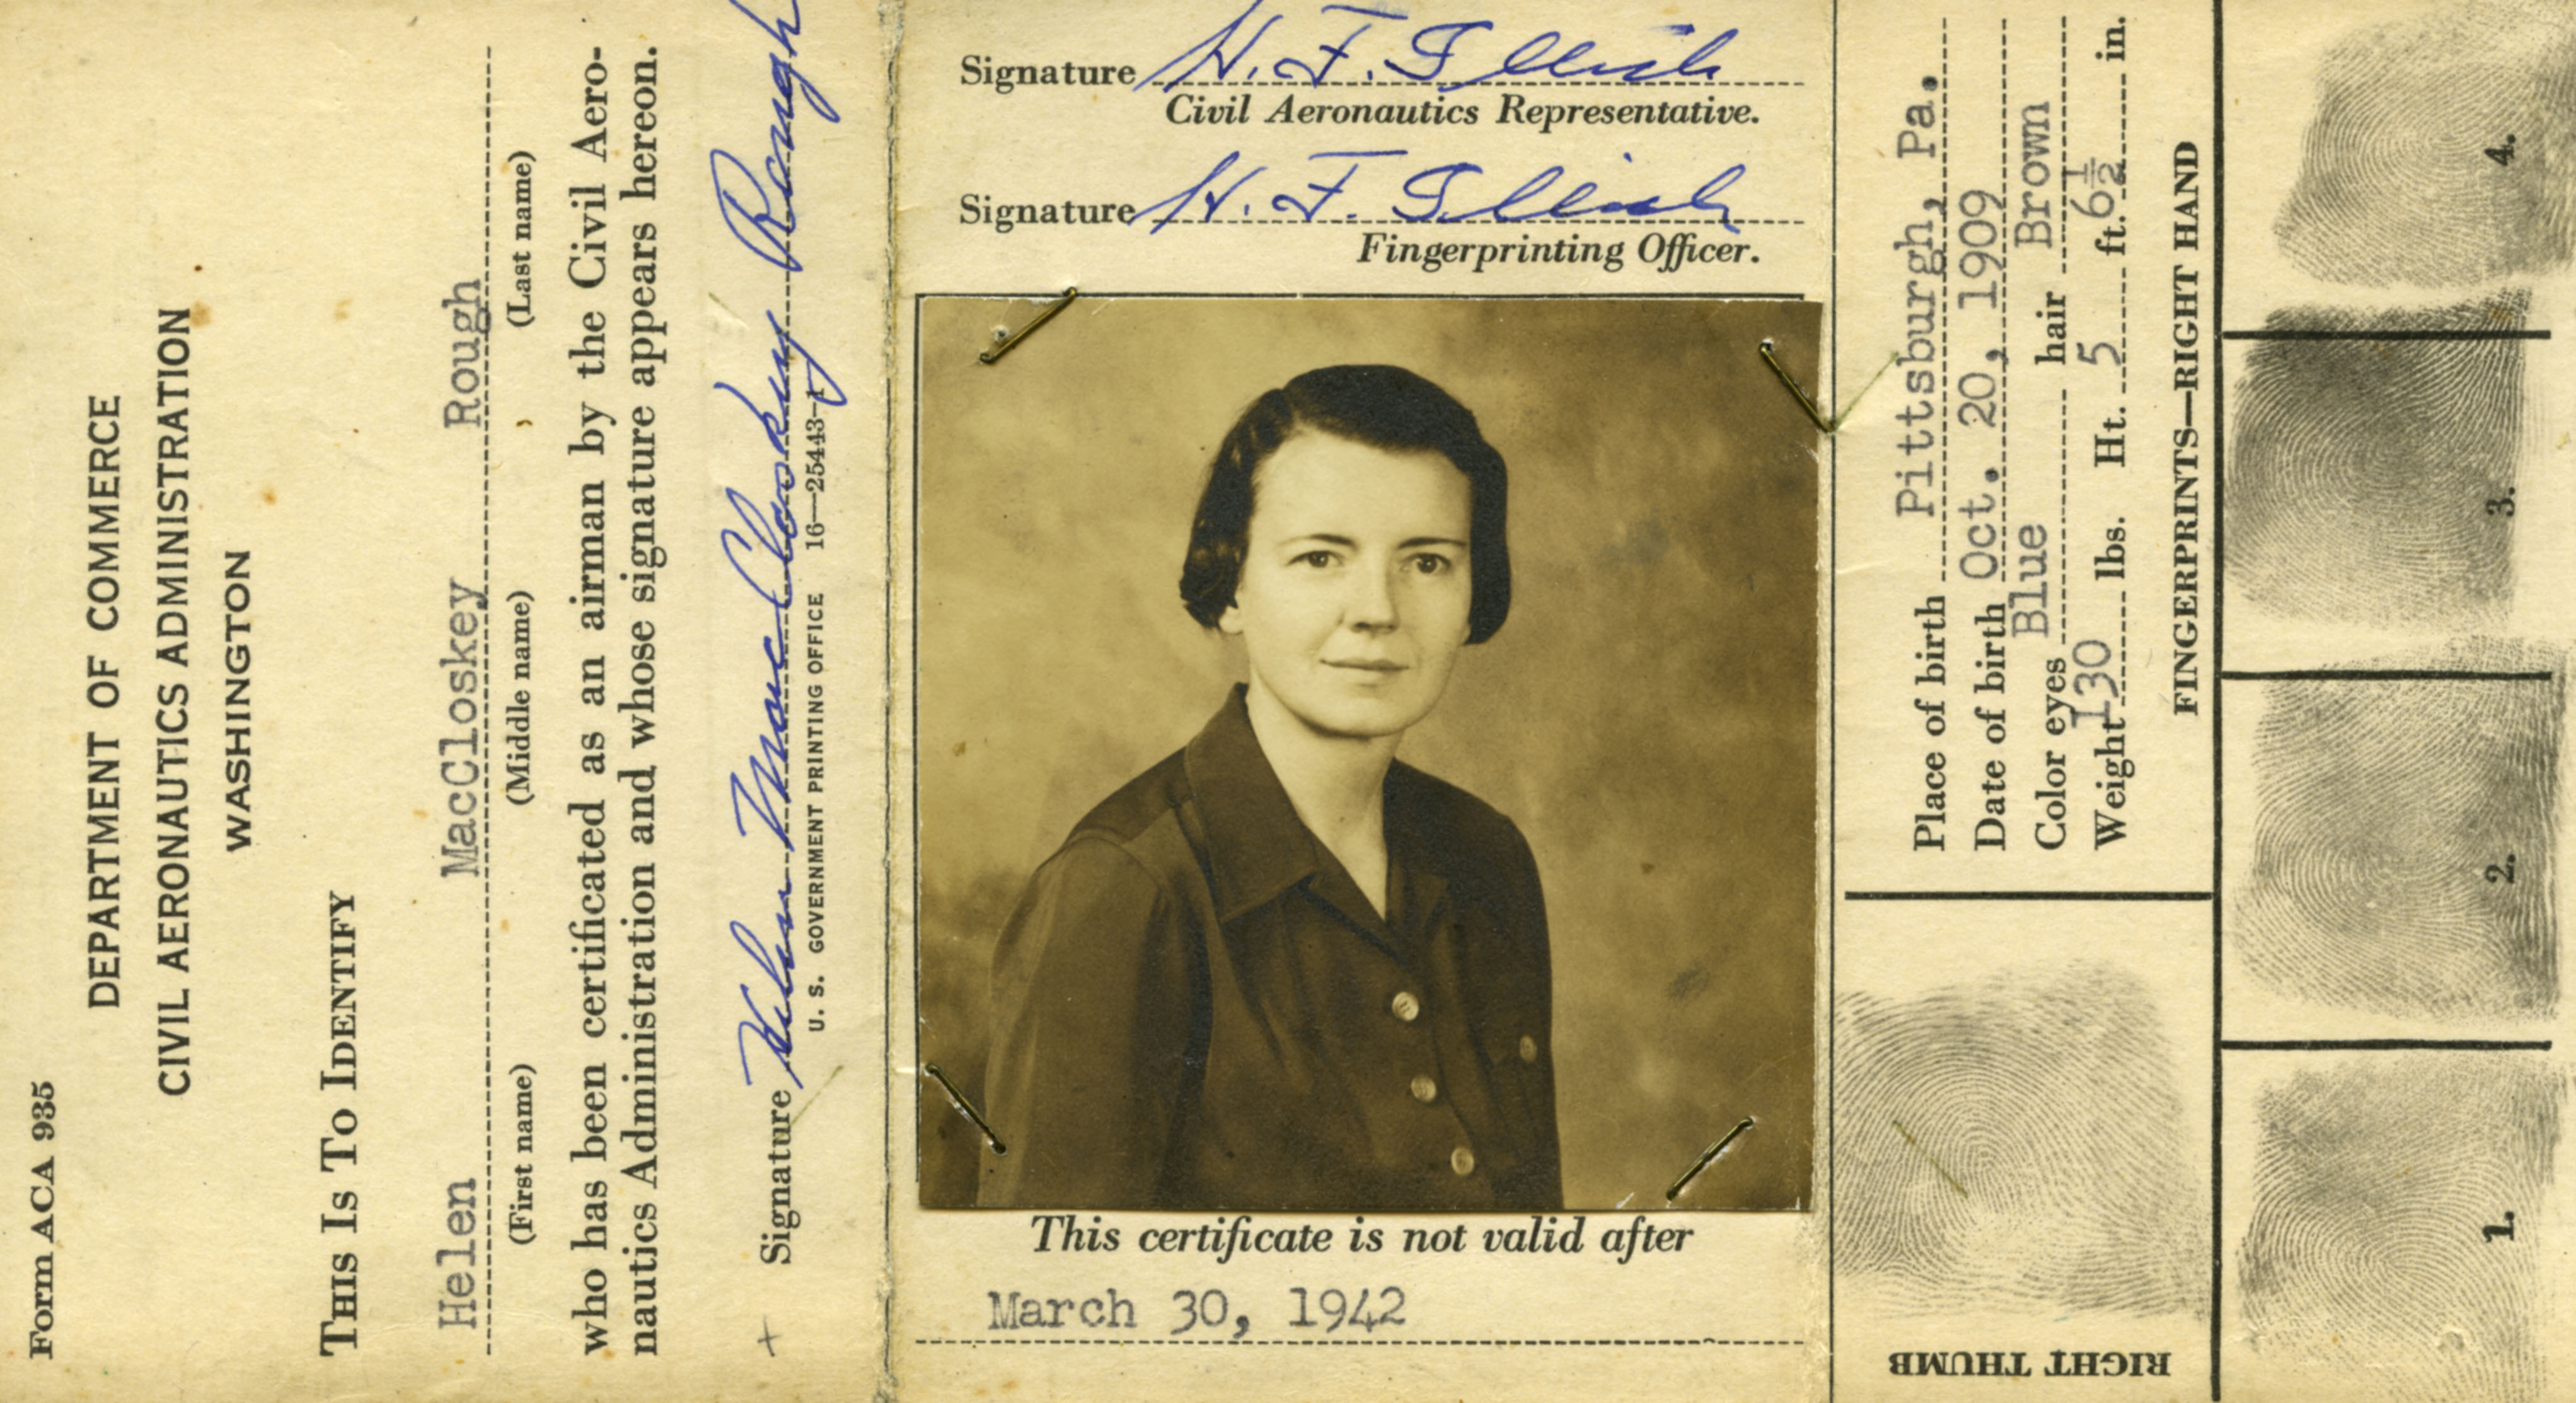 Form ACA 935
DEPARTMENT OF COMMERCE
CIVIL AERONAUTICS ADMINISTRATION
WASHINGTON
THIS IS TO IDENTIFY
Helen MacCloskey Rough
(First name) (Middle name) (Last name)
who has been certificated as an airman by the Civil Aero-
nautics Administration and whose signature appears hereon.
+ Signature Helen MacCloskey Rough
U. S. GOVERNMENT PRINTING OFFICE 16—25443-1
Signature H. F.
Civil Aeronautics Representative.
Signature H. F.
Fingerprinting Officer.
This certificate is not valid after
March 30, 1942
Place of birth Pittsburgh, Pa.
Date of birth Oct. 20, 1909
Color eyes Blue hair Brown
Weight 130 lbs. Ht. 5 ft. 6½ in.
FINGERPRINTS—RIGHT HAND
RIGHT THUMB
1. 2. 3. 4.